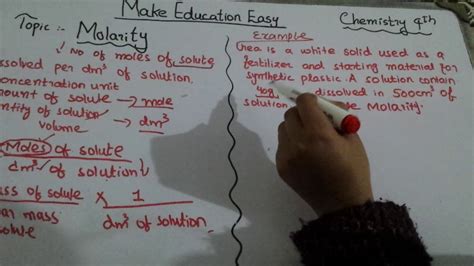 Make Education Easy
Chemistry 9th
Topic :- Molarity
No of moles of solute
ssolved per dm³ of solution.
oncentration unit
mount of solute → mole
ntity of solution →
volume → dm³
Moles of solute
dm³ of solution
ass of solute × 1
mass
solute dm³ of solution
Example
Urea is a white solid used as a
fertilizer and starting material for
synthetic plastic. A solution contain
40g dissolved in 500cm³ of
solution Molarity